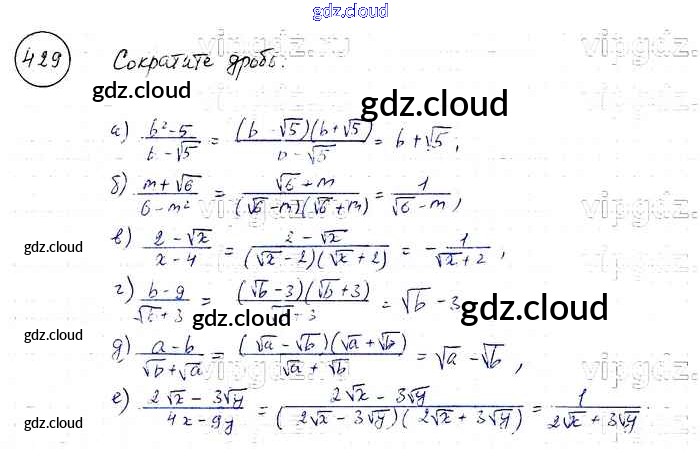 gdz.cloud
429 Сократите дробь:
vipgdz.ru
gdz.cloud
gdz.cloud
а) (b²-5)/(b-√5) = ((b-√5)(b+√5))/(b-√5) = b+√5,
б) (m+√6)/(6-m²) = (√6+m)/((√6-m)(√6+m)) = 1/(√6-m),
gdz.cloud
gdz.cloud
в) (2-√x)/(x-4) = (2-√x)/((√x-2)(√x+2)) = -1/(√x+2),
г) (b-9)/(√b+3) = ((√b-3)(√b+3))/(√b+3) = √b-3
gdz.cloud
gdz.cloud
gdz.cloud
д) (a-b)/(√b+√a) = ((√a-√b)(√a+√b))/(√a+√b) = √a-√b,
е) (2√x-3√y)/(4x-9y) = (2√x-3√y)/((2√x-3√y)(2√x+3√y)) = 1/(2√x+3√y)
gdz.cloud